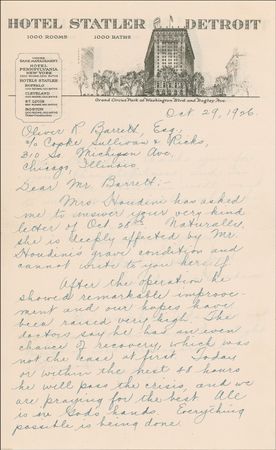 HOTEL STATLER DETROIT
1000 ROOMS 1000 BATHS
HOTEL
PENNSYLVANIA
NEW YORK
HOTELS STATLER
BUFFALO
CLEVELAND
ST. LOUIS
BOSTON
Grand Circus Park at Washington Blvd. and Bagley Ave.
Oct 29, 1926.
Oliver R Barrett, Esq.,
c/o Cooke Sullivan & Ricks,
310 So Michigan Ave,
Chicago, Illinois
Dear Mr. Barrett,-
Mrs. Houdini has asked
me to answer your very kind
letter of Oct 28th. Naturally
she is deeply affected by Mr.
Houdini's grave condition and
cannot write to you herself.
After the operation he
showed remarkable improve
ment and our hopes have
been raised very high. The
doctors say he has an even
chance of recovery, which was
not the case at first. Today
or within the next 48 hours
he will pass the crisis, and we
are praying for the best. All
is in God's hands. Everything
possible is being done